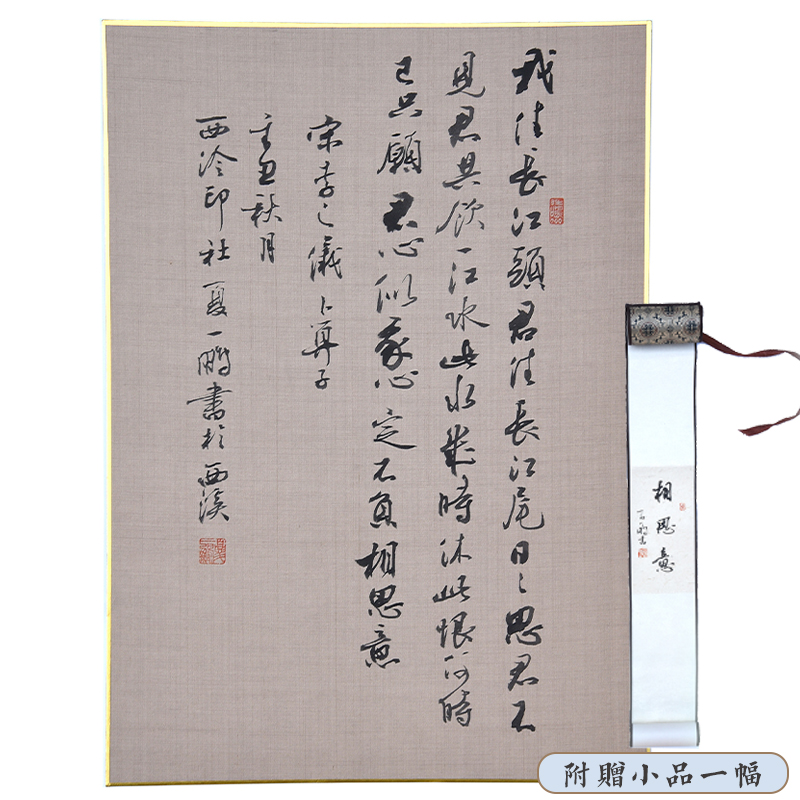 我住長江頭君住長江尾日〻思君不
見君共飲一江水此水幾時休此恨何時
已只願君心似我心定不負相思意
宋李之儀卜算子
辛丑秋月
西泠印社夏一鵬書於西溪
相思意
附贈小品一幅